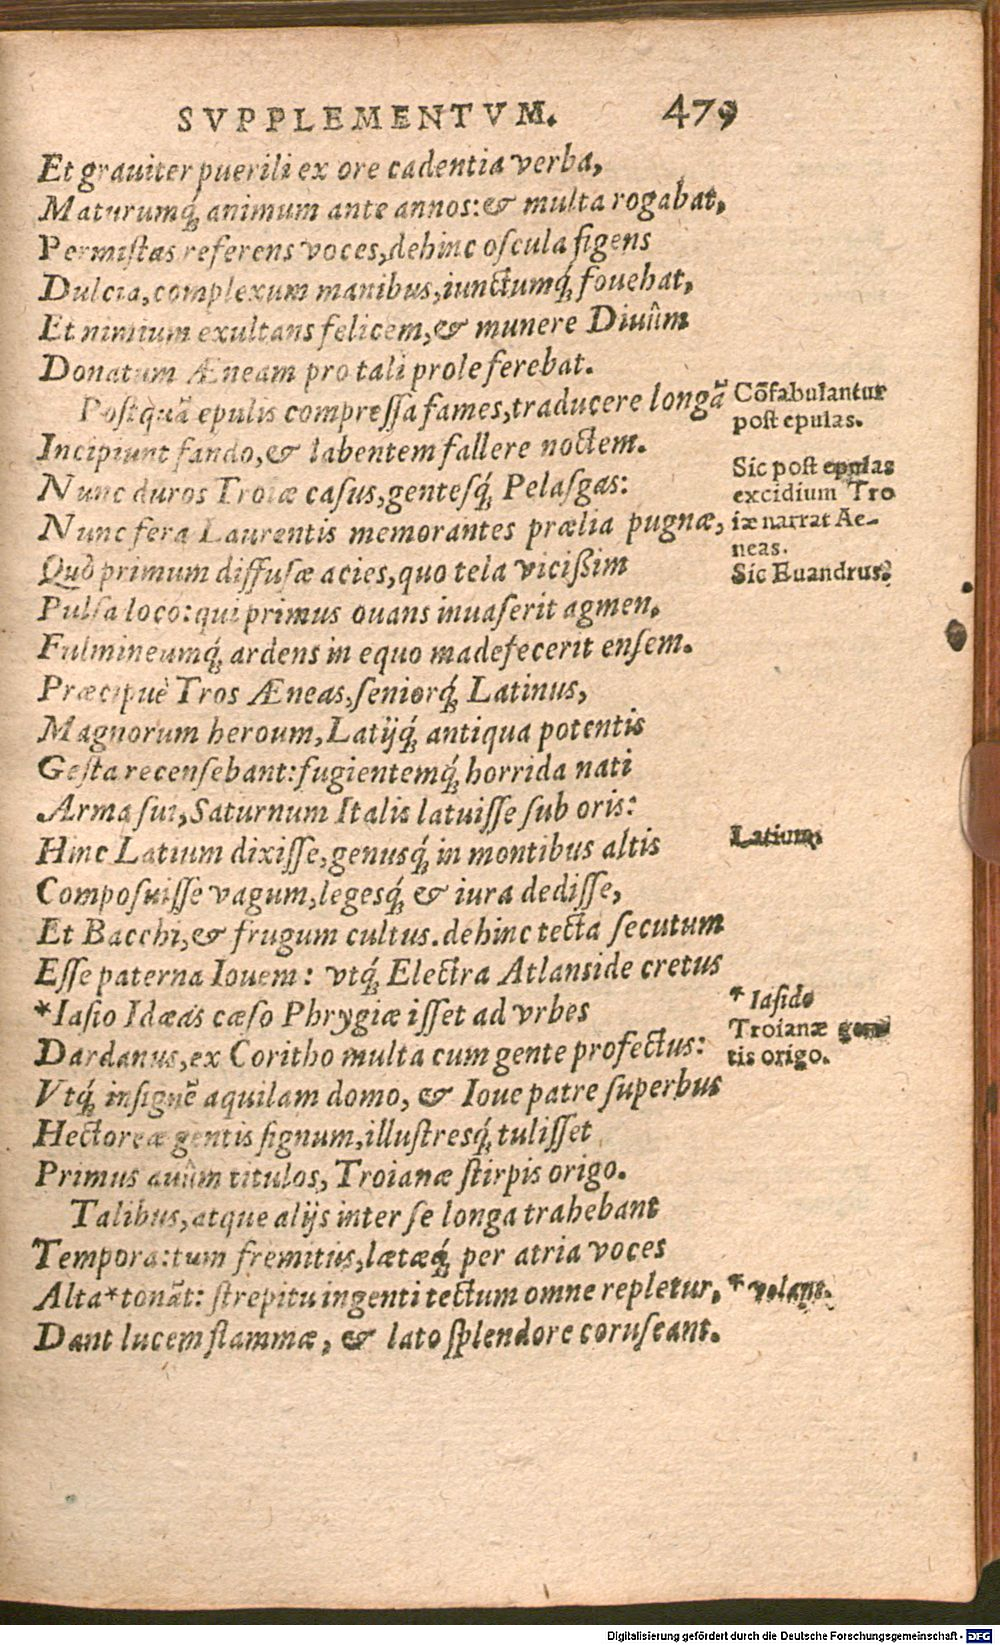 SVPPLEMENTVM. 479
Et grauiter puerili ex ore cadentia verba,
Maturumq́; animum ante annos: & multa rogabat,
Permistas referens voces, dehinc oscula figens
Dulcia, complexum manibus, iunctumq́; fouebat,
Et nimium exultans felicem, & munere Diuûm
Donatum Æneam pro tali prole ferebat.
Postquã epulis compressa fames, traducere longã
Incipiunt fando, & labentem fallere noctem.
Nunc duros Troiæ casus, gentesq́; Pelasgas:
Nunc fera Laurentis memorantes prælia pugnæ,
Quò primum diffusæ acies, quo tela vicißim
Pulsa loco: qui primus ouans inuaserit agmen,
Fulmineumq́; ardens in equo madefecerit ensem.
Præcipuè Tros Æneas, seniorq́; Latinus,
Magnorum heroum, Latijq́; antiqua potentis
Gesta recensebant: fugientemq́; horrida nati
Arma sui, Saturnum Italis latuisse sub oris:
Hinc Latium dixisse, genusq́; in montibus altis
Composuisse vagum, legesq́; & iura dedisse,
Et Bacchi, & frugum cultus. dehinc tecta secutum
Esse paterna Iouem: vtq́; Electra Atlanside cretus
*Iasio Idæas cæso Phrygiæ isset ad vrbes
Dardanus, ex Coritho multa cum gente profectus:
Vtq́; insignẽ aquilam domo, & Ioue patre superbus
Hectoreæ gentis signum, illustresq́; tulisset
Primus auûm titulos, Troianæ stirpis origo.
Talibus, atque alijs inter se longa trahebant
Tempora: tum fremitus, lætæq́; per atria voces
Alta *tonãt: strepitu ingenti tectum omne repletur,
Dant lucem flammæ, & lato splendore coruscant.
Cõfabulantur
post epulas.
Sic post epulas
excidium Tro
iæ narrat Ae-
neas.
Sic Euandrus.
Latium.
* Iasido
Troianæ gen
tis origo.
* volant.